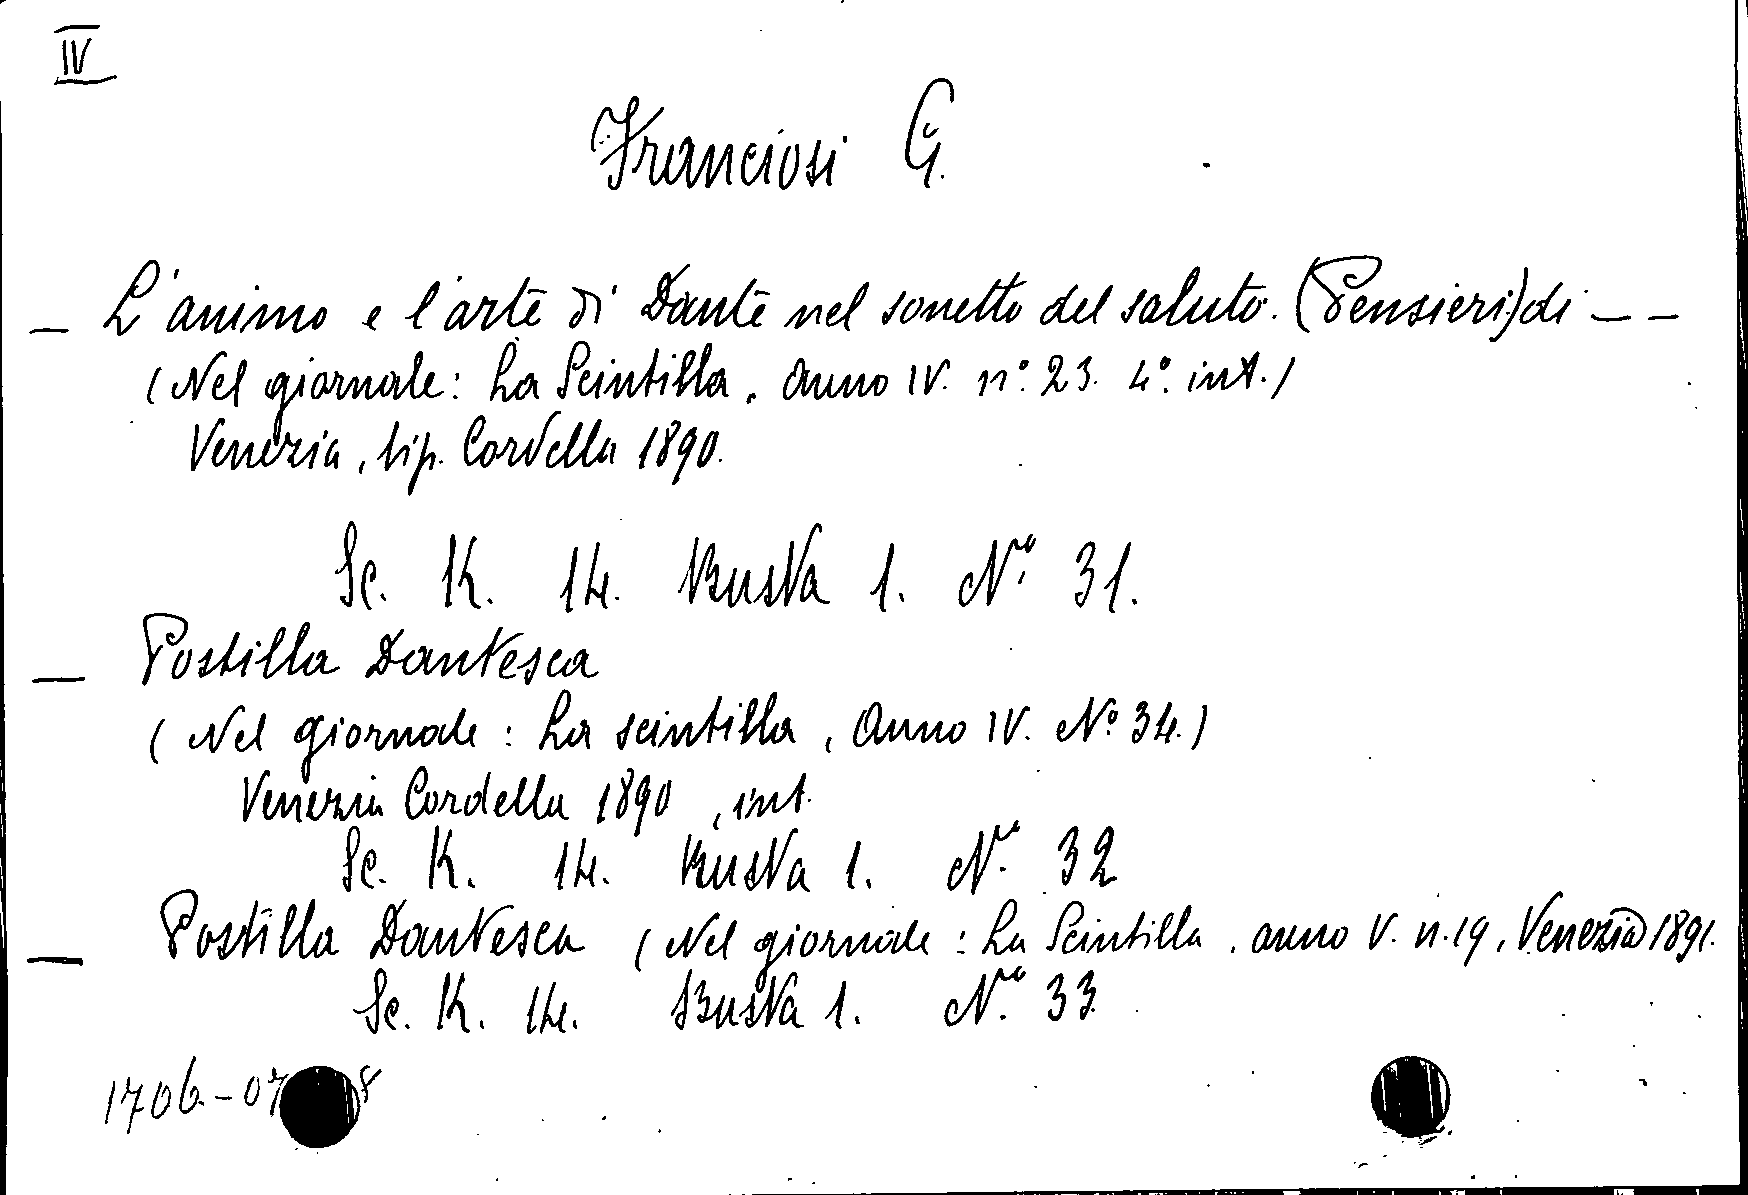 IV
Franciosi G.
— L'animo e l'arte di Dante nel sonetto del saluto. (Pensieri) di — —
(Nel giornale: La Scintilla, anno IV. n° 23. 4° int.)
Venezia, tip. Cordella 1890.
Sc. K. 14. Busta 1. N° 31.
— Postilla Dantesca
(Nel giornale: La scintilla, Anno IV. N° 34.)
Venezia Cordella 1890, int.
Sc. K. 14. Busta 1. N° 32
— Postilla Dantesca (Nel giornale: La Scintilla, anno V. n. 19, Venezia 1891.
Sc. K. 14. Busta 1. N° 33
1706-07 8